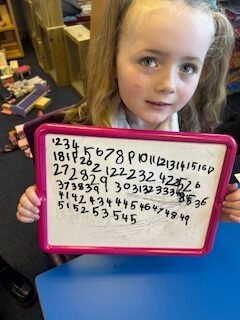 1234 5 6 7 8 9 10 11 12 13 14 15 16 17
18 19 20 21 22 23 24 25 26
27 28 29 30 31 32 33 34 35 36
37 38 39
41 42 43 44 45 46 47 48 49
51 52 53 54 5